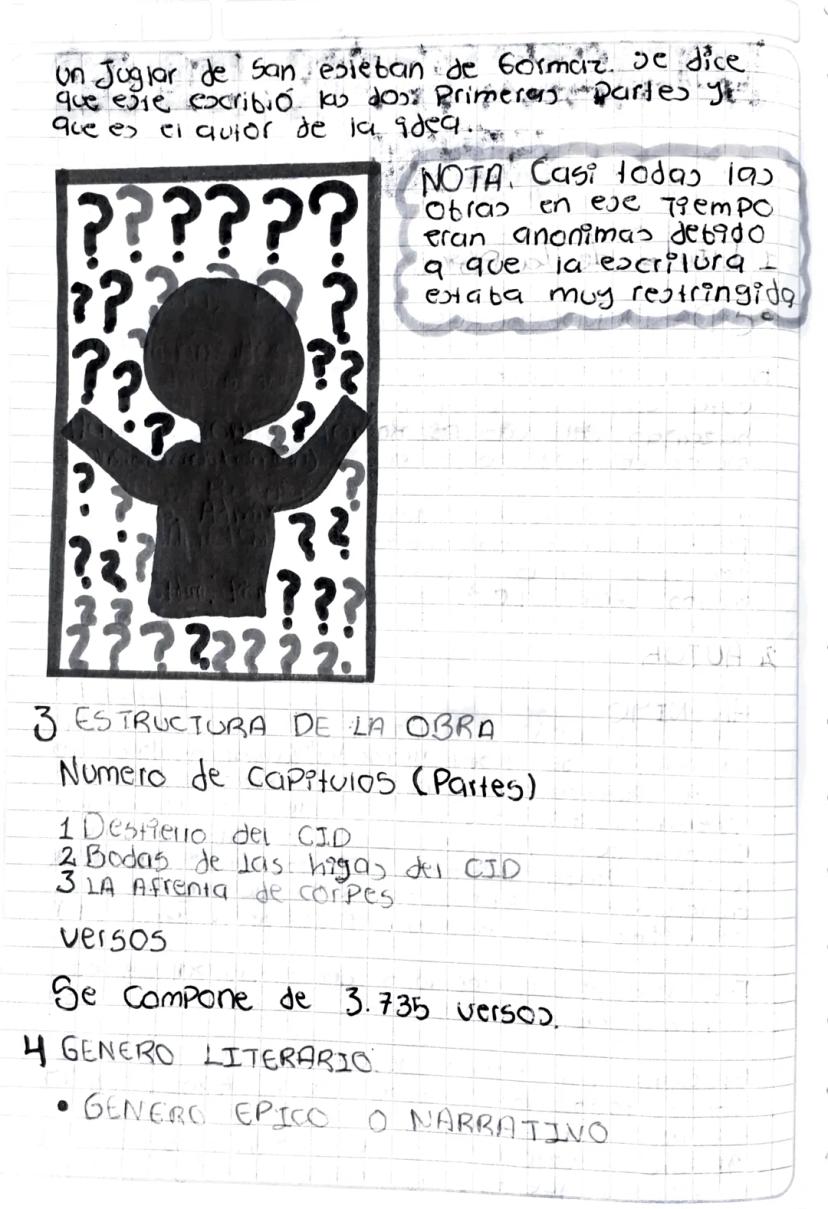 un Juglar de San esteban de Gormaz. se dice
que este escribió las dos Primeras Partes y
que es el autor de la idea.
NOTA. Casi todas las
obras en ese Tiempo
eran anonimas debido
a que la escritura
estaba muy restringida
3 ESTRUCTURA DE LA OBRA
Numero de Capitulos (Partes)
1 Destierro del CID
2 Bodas de las higas del CID
3 LA Afrenta de corpes
versos
Se Compone de 3.735 versos.
4 GENERO LITERARIO
• GENERO EPICO O NARRATIVO